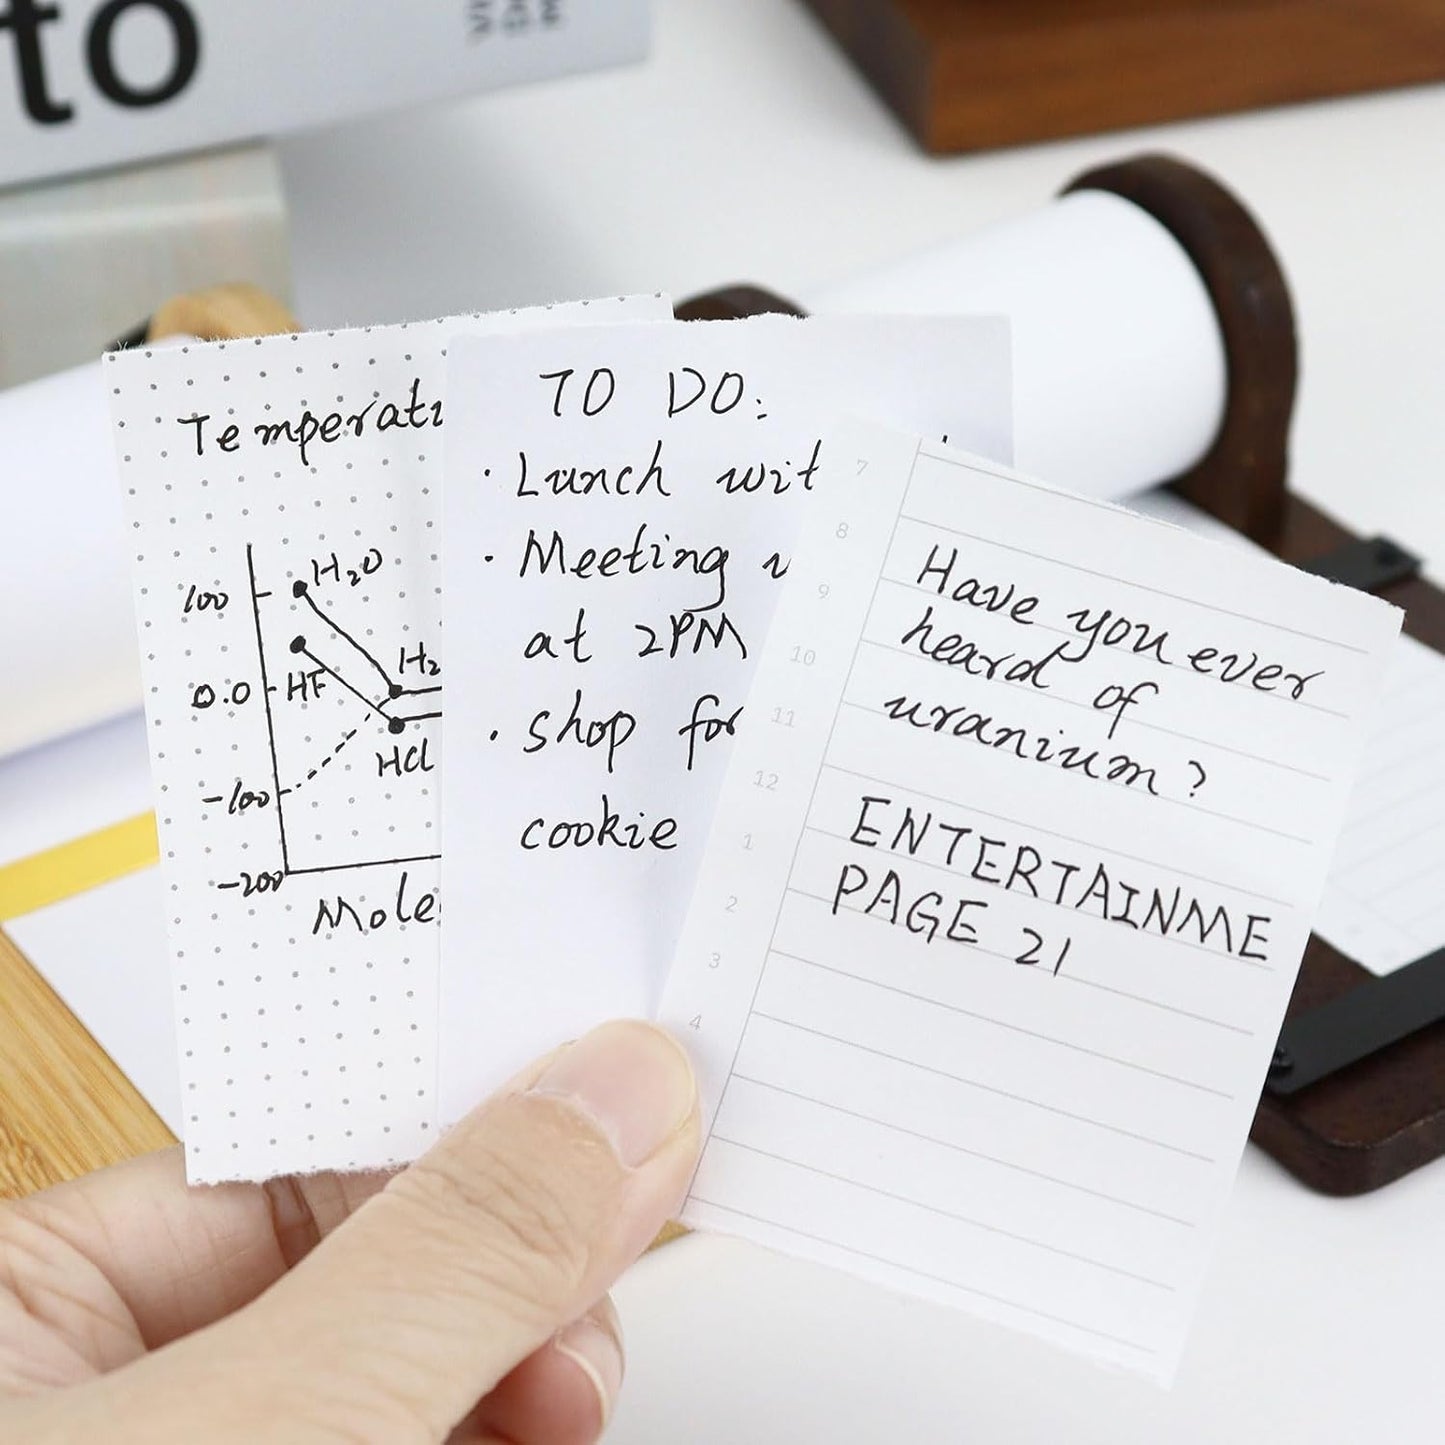 to
Temperat
100
H₂O
0.0
HF
H₂
-100
HCl
-200
Mole
TO DO:
· Lunch wit
· Meeting
at 2PM
· shop for
cookie
7
8
9
10
11
12
1
2
3
4
Have you ever
heard of
uranium?
ENTERTAINME
PAGE 21